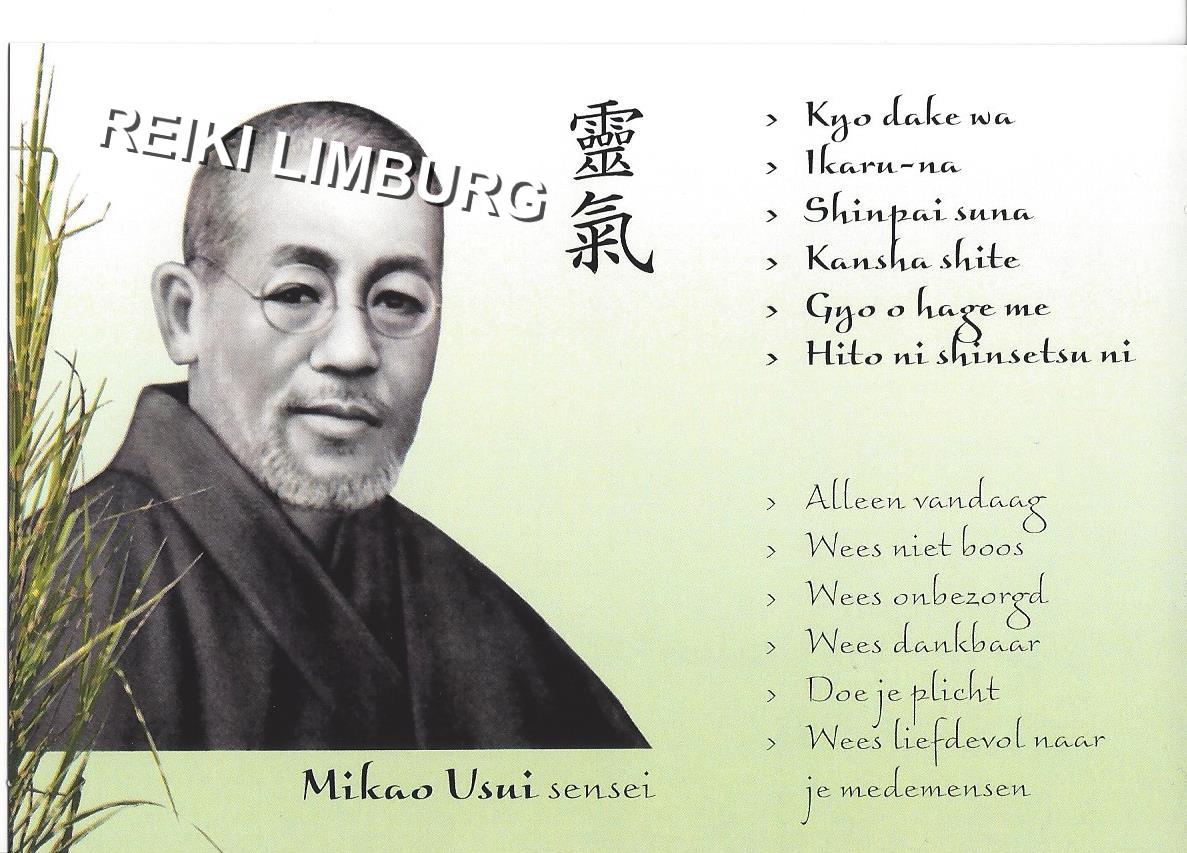 REIKI LIMBURG
靈
氣
> Kyo dake wa
> Ikaru-na
> Shinpai suna
> Kansha shite
> Gyo o hage me
> Hito ni shinsetsu ni
> Alleen vandaag
> Wees niet boos
> Wees onbezorgd
> Wees dankbaar
> Doe je plicht
> Wees liefdevol naar
je medemensen
Mikao Usui sensei